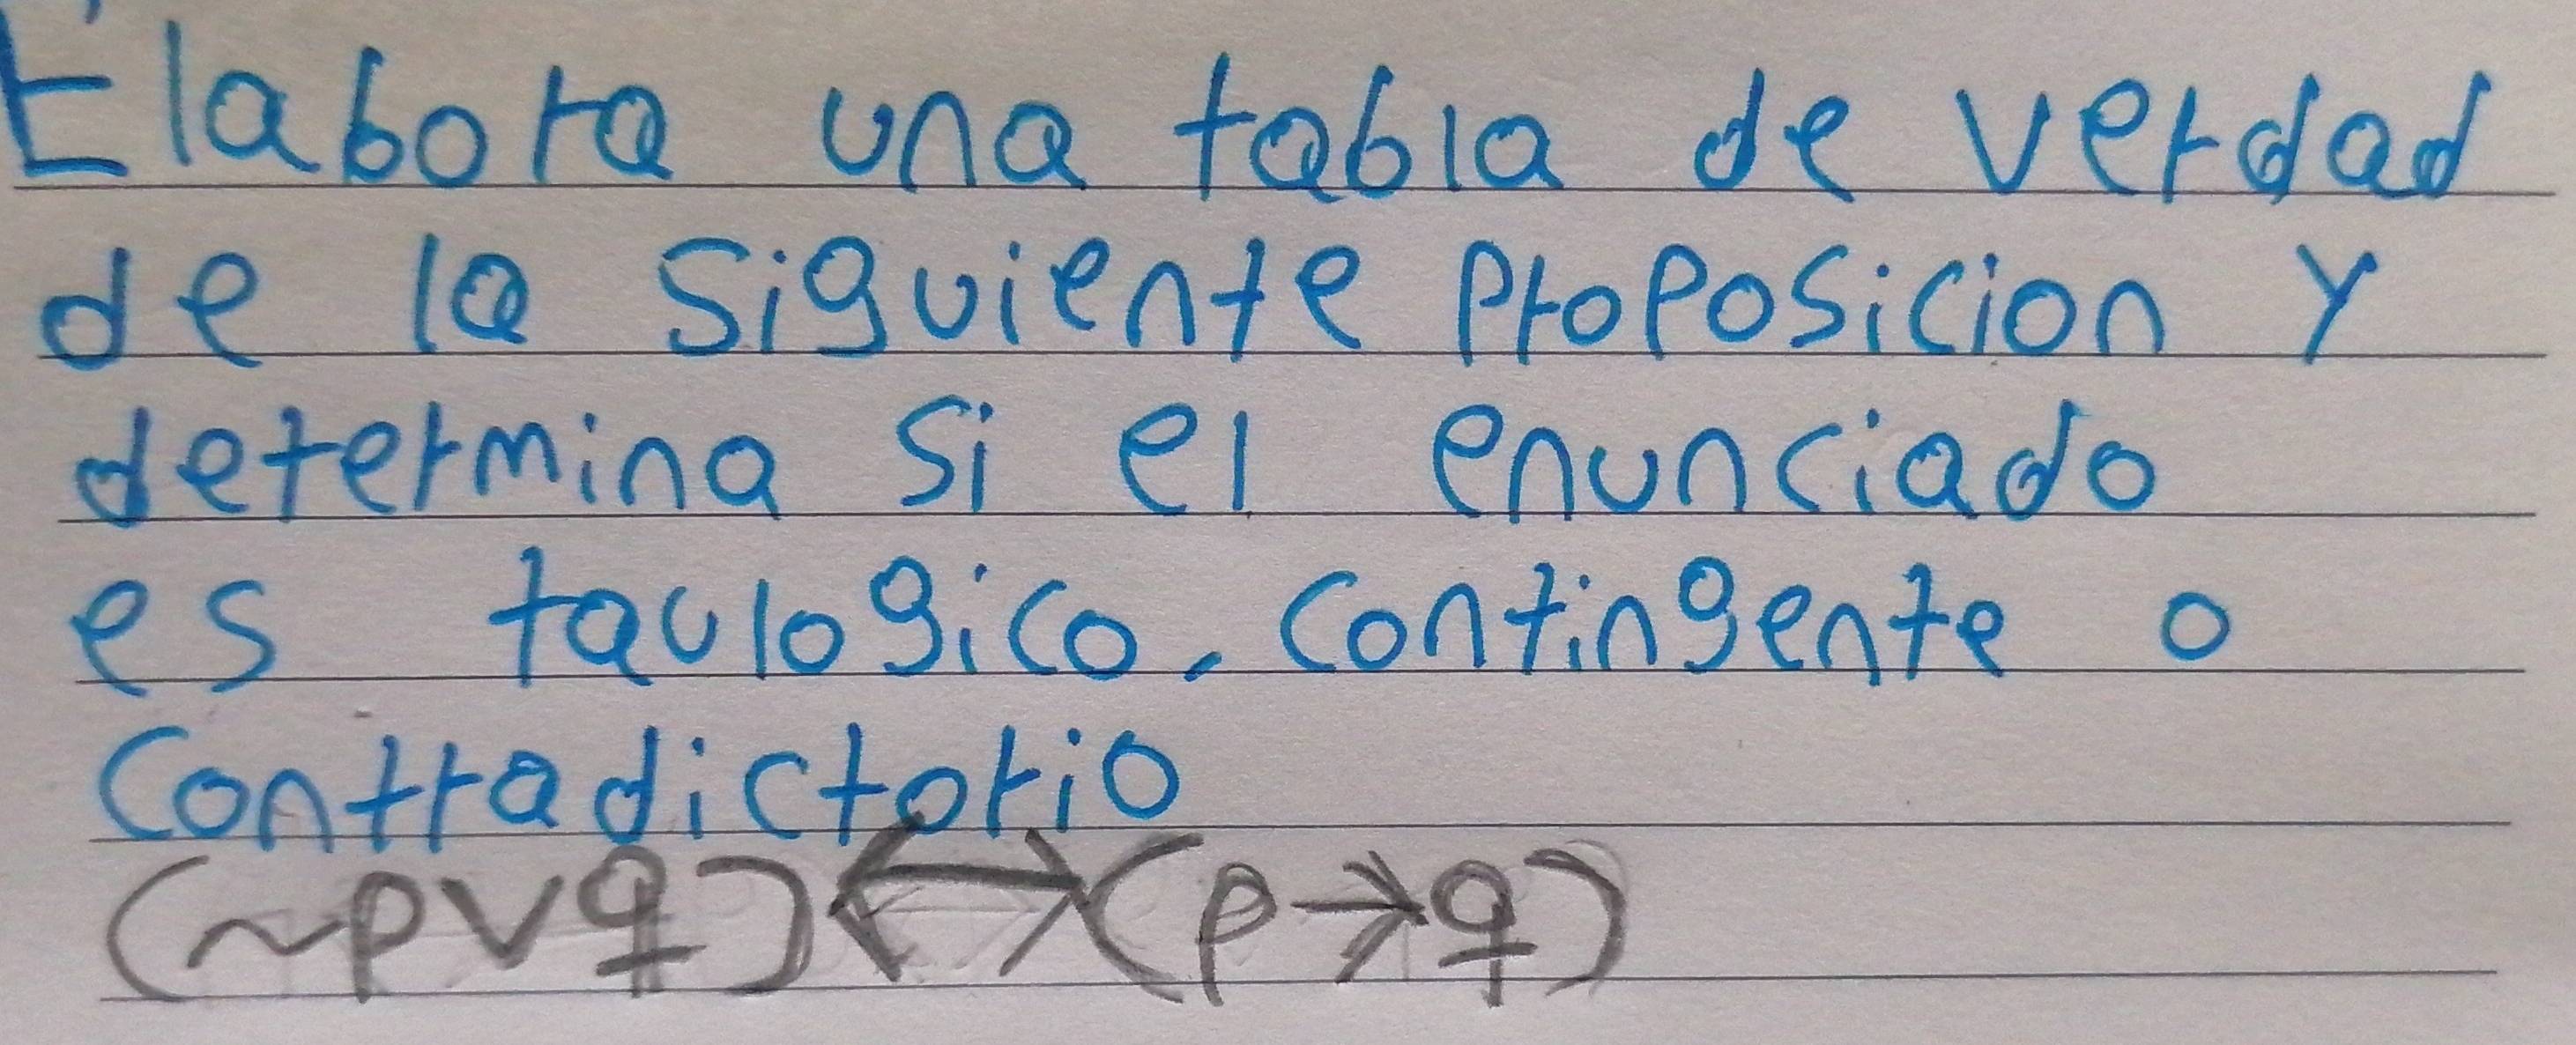 Elabora una tabla de verdad
de la siguiente proposicion y
determina si el enunciado
es taulogico, contingente o
contradictorio
(~p∨q)↔(p→q)